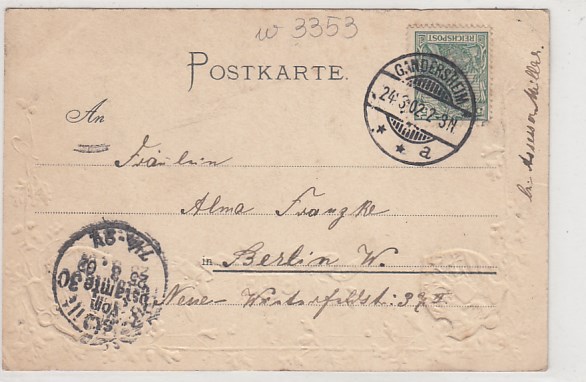 w 3353
POSTKARTE.
REICHSPOST
GANDERSHEIM
24.3.02.2-3N
* * a
An
Fräulein
Alma Franzke
in Berlin W.
Neue Winterfeldtstr: 37 II
bei Assessor Müller